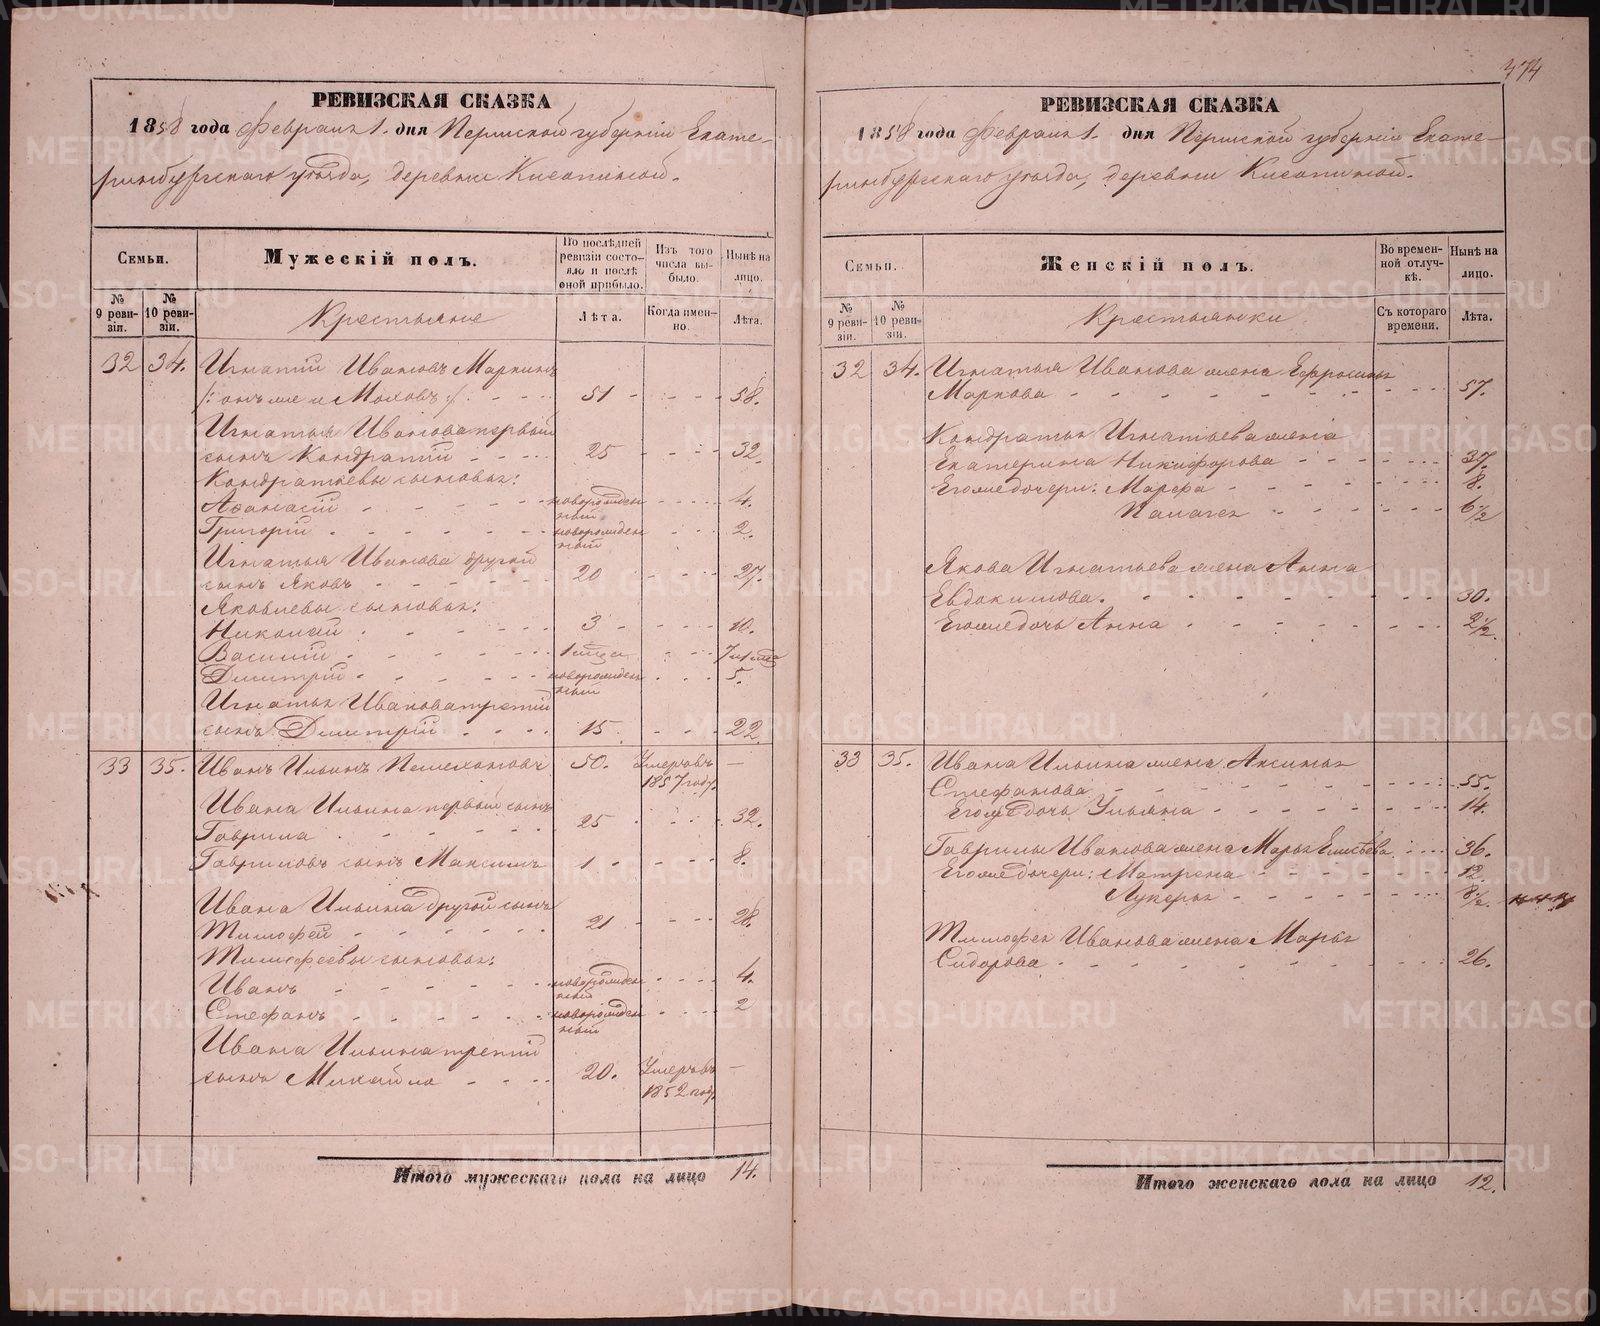 РЕВИЗСКАЯ СКАЗКА
1858 года Февраля 1. дня Пермской губернии Екате-
ринбургскаго уѣзда, деревни
Семьи.
Мужескій полъ.
По послѣдней ревизіи состояло и послѣ оной прибыло.
Изъ того числа выбыло.
Нынѣ на лицо.
№ 9 ревизіи.
№ 10 ревизіи.
Крестьяне
Лѣта.
Когда именно.
Лѣта.
32 34. Игнатій Ивановъ Маркинъ
/: онъ же и :/. 51 58.
Игнатья Иванова первый
сынъ Кондратій 25 32.
Кондратьевы сыновья:
Афанасій новорожденный 4.
Григорій новорожденный 2.
Игнатья Иванова другій
сынъ Яковъ 20 27.
Яковлевы сыновья:
Николай 3 10.
Василій
Димитрій новорожденный 5.
Игнатья Иванова третій
сынъ Димитрій 15. 22
33 35. Иванъ Ильинъ Пелехановъ 50. Умеръ въ 1857 году. —
Ивана Ильина первый сынъ
Гаврила 25 32.
Гавриловъ сынъ Максимъ 1 8.
Ивана Ильина другой сынъ
Тимофей 21 28.
Тимофеевы сыновья:
Иванъ новорожденный 4.
Стефанъ новорожденный 2
Ивана Ильина третій
сынъ Михайло 20. Умеръ въ 1852 году. —
Итого мужескаго пола на лицо 14.
374
РЕВИЗСКАЯ СКАЗКА
1858 года Февраля 1. дня Пермской губерніи Екате-
ринбургскаго уѣзда, деревни
Семьи.
Женскій полъ.
Во временной отлучкѣ.
Нынѣ на лицо.
№ 9 ревизіи.
№ 10 ревизіи.
Крестьянки
Съ котораго времени.
Лѣта.
32 34. Игнатья Иванова жена Ефросинья
Маркова 57.
Кондратья Игнатьева жена
Екатерина Никифорова 37.
Его же дочери: Марфа 8.
Палагея 6 1/2
Якова Игнатьева жена Анна
Евдокимова. 30.
Его же дочь Анна 2 1/2.
33 35. Ивана Ильина жена Аксинья
Стефанова 55.
Его же дочь Ульяна 14.
Гаврилы Иванова жена Марья Елисѣева 36.
Его же дочери: Матрена 12.
Лукерья 8 1/2.
Тимофея Иванова жена Марья
Сидорова 26.
Итого женскаго пола на лицо 12.
METRIKI.GASO-URAL.RU